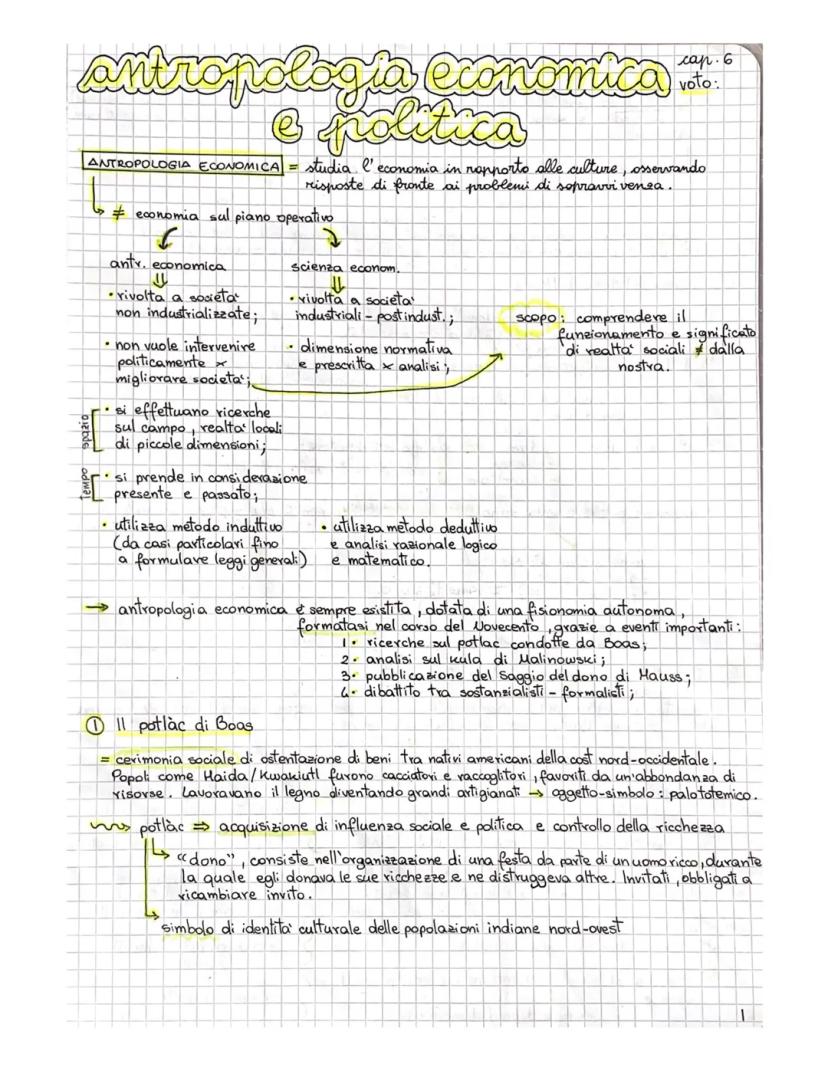 antropologia economica
cap. 6
voto:
e politica
ANTROPOLOGIA ECONOMICA = studia l'economia in rapporto alle culture, osservando
risposte di fronte ai problemi di sopravvivenza.
≠ economia sul piano operativo
antr. economica
• rivolta a societa'
non industrializzate;
• non vuole intervenire
politicamente x
migliorare societa';
spazio
• si effettuano ricerche
sul campo, realta' locali
di piccole dimensioni;
tempo
• si prende in considerazione
presente e passato;
• utilizza metodo induttivo
(da casi particolari fino
a formulare leggi generali)
scienza econom.
• rivolta a societa'
industriali - postindust.;
• dimensione normativa
e prescritta x analisi;
• utilizza metodo deduttivo
e analisi razionale logico
e matematico.
scopo: comprendere il
funzionamento e significato
di realta' sociali ≠ dalla
nostra.
→ antropologia economica è sempre esistita, dotata di una fisionomia autonoma,
formatasi nel corso del Novecento, grazie a eventi importanti:
1. ricerche sul potlac condotte da Boas;
2. analisi sul kula di Malinowski;
3. pubblicazione del Saggio del dono di Mauss;
4. dibattito tra sostanzialisti - formalisti;
① Il potlàc di Boas
= cerimonia sociale di ostentazione di beni tra nativi americani della cost nord-occidentale.
Popoli come Haida/Kwakiutl furono cacciatori e raccoglitori, favoriti da un'abbondanza di
risorse. Lavoravano il legno diventando grandi artigianati → oggetto-simbolo: palo totemico.
potlàc ⇒ acquisizione di influenza sociale e politica e controllo della ricchezza
"dono", consiste nell'organizzazione di una festa da parte di un uomo ricco, durante
la quale egli donava le sue ricchezze e ne distruggeva altre. Invitati, obbligati a
ricambiare invito.
simbolo di identita' culturale delle popolazioni indiane nord-ovest
1